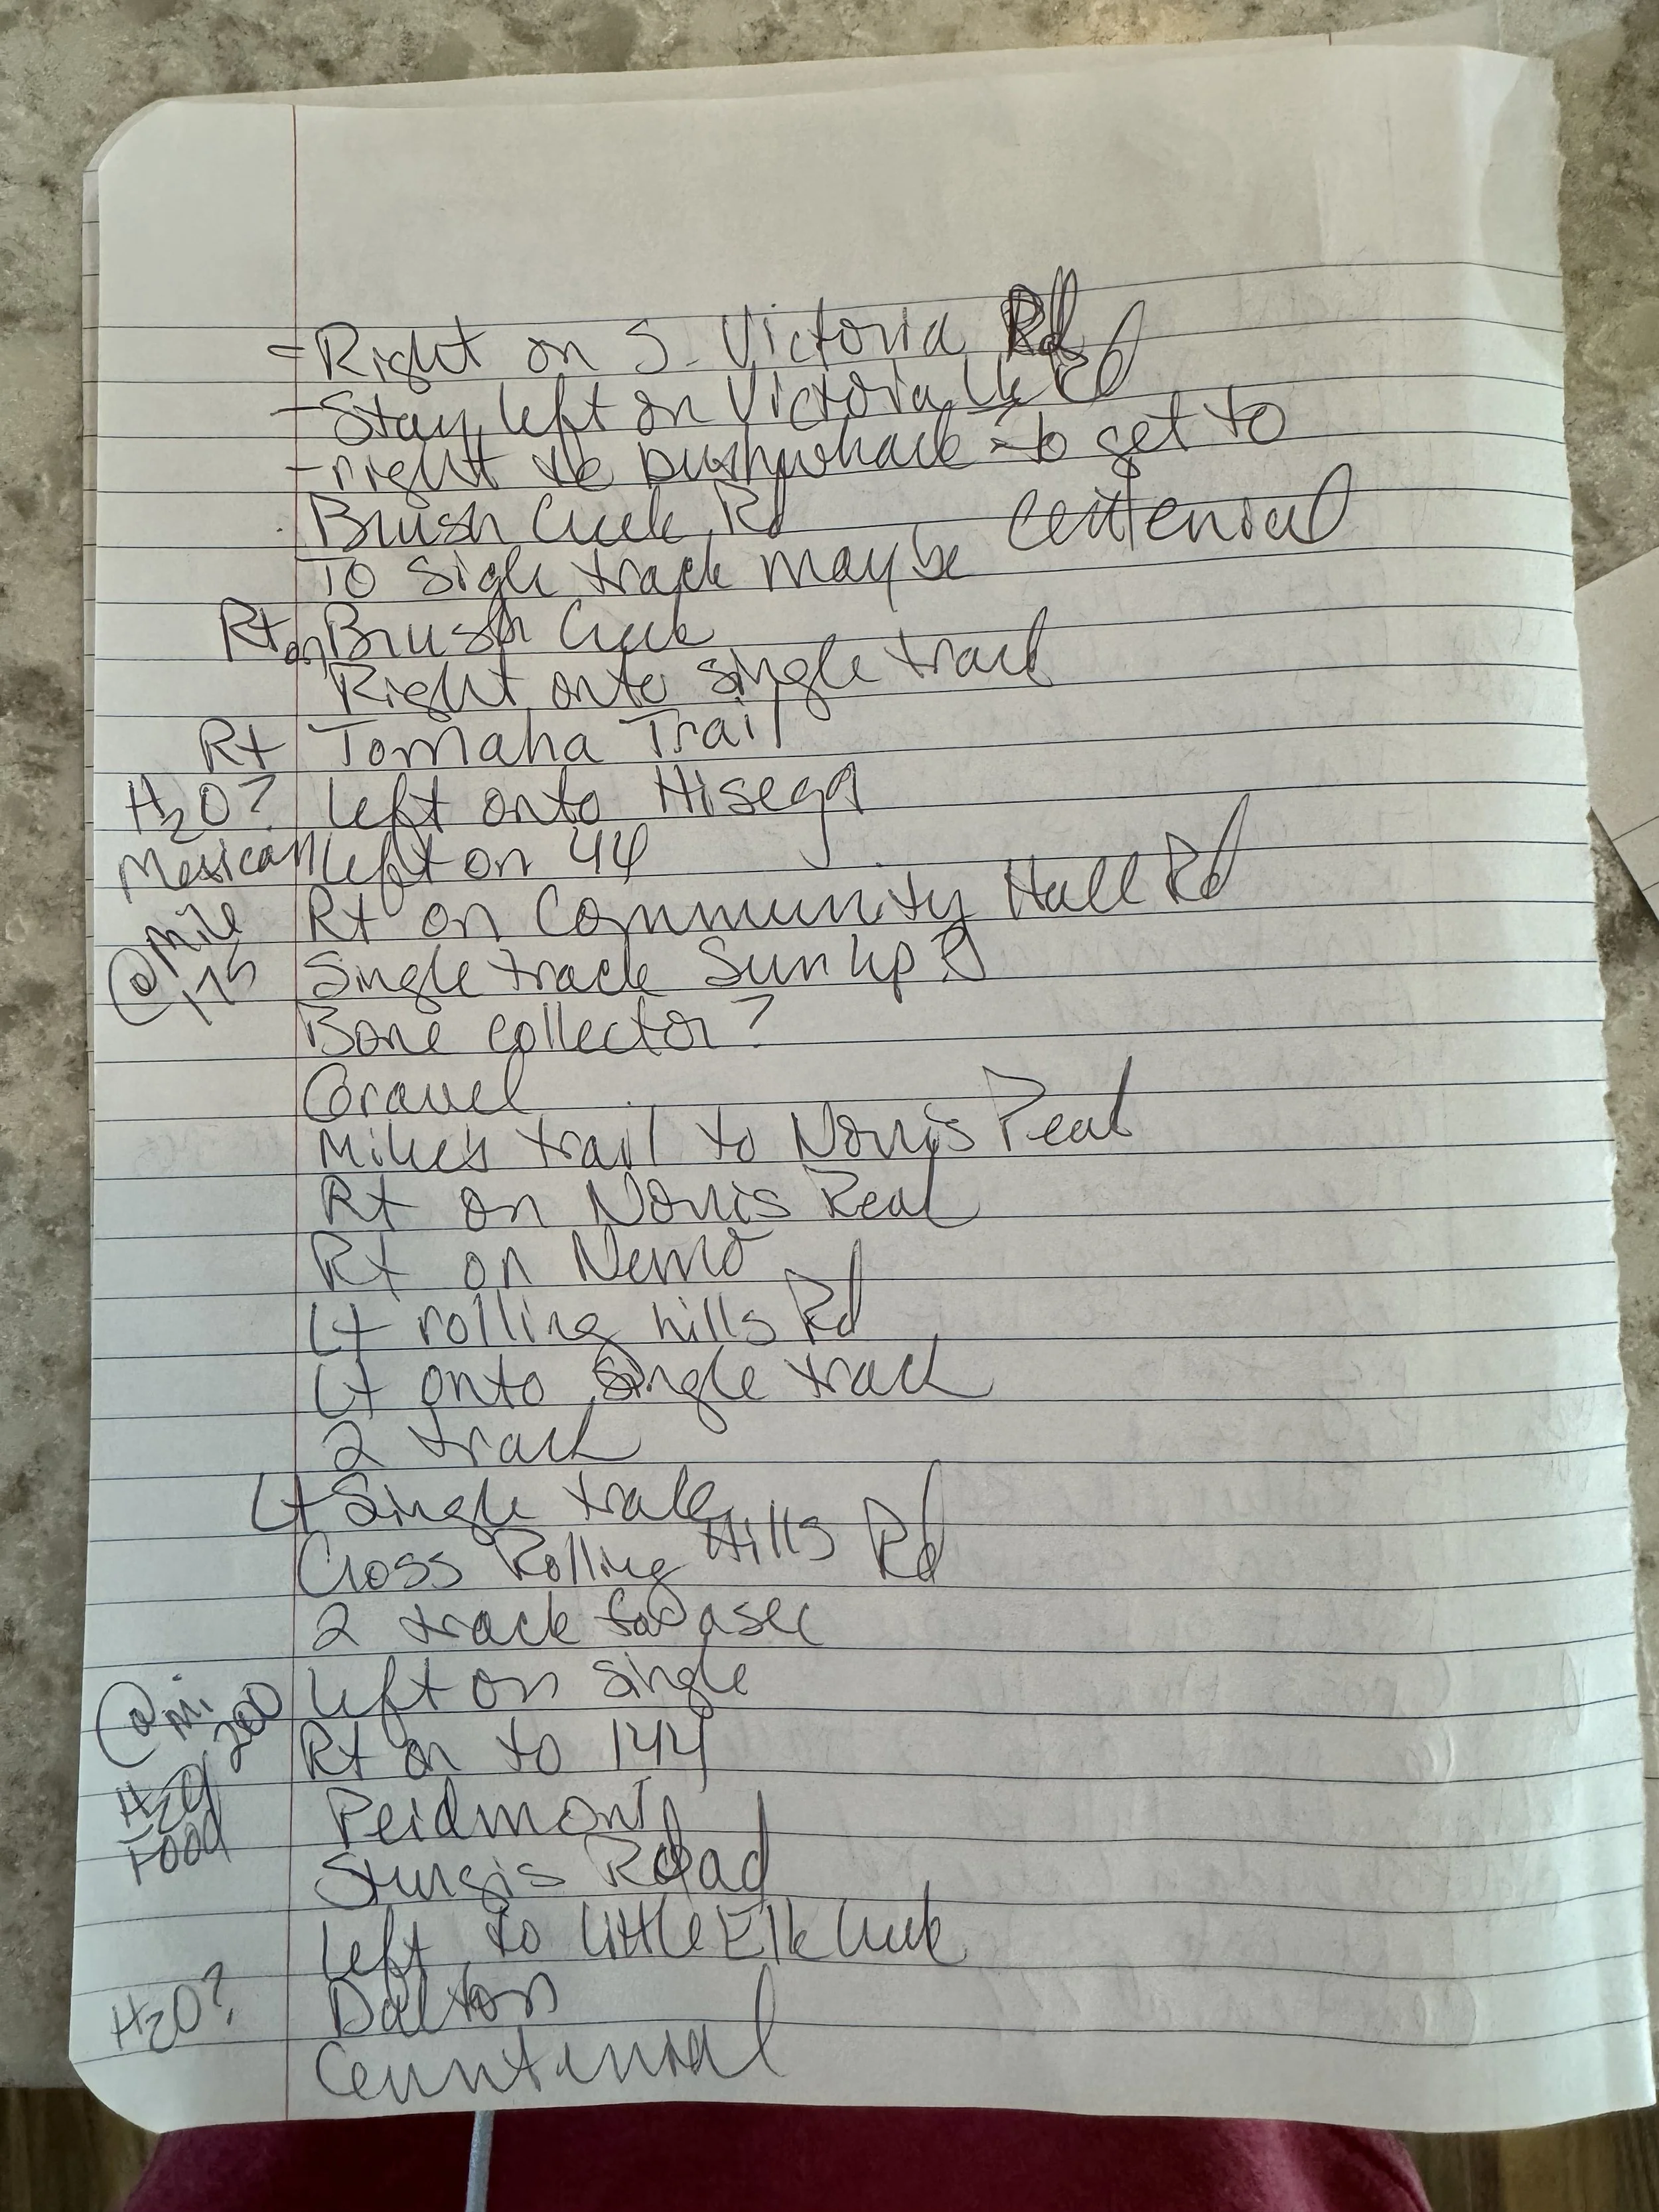 - Right on S. Victoria Rd
- Stay left on Victoria Lk Rd
- right to bushwhack to get to
Brush Creek Rd
To sigle track maybe Centenial
Rt on Brush Creek
Right onto single track
Rt Tomaha Trail
H2O? left onto Hisega
Mexican left on 44
@ mile 175 Rt on Community Hall Rd
Single track Sun up?
Bone collector?
Gravel
Mike's trail to Norris Peak
Rt on Norris Peak
Rt on Nemo
Lt rolling hills Rd
Lt onto single track
2 track
Lt Single track
Cross Rolling Hills Rd
2 track for a sec
@ mi 200 left on single
Rt on to 144
H2O/ Food Peidmont
Sturgis Road
Left to Little Elk Creek
H2O? Dalton
Centenial